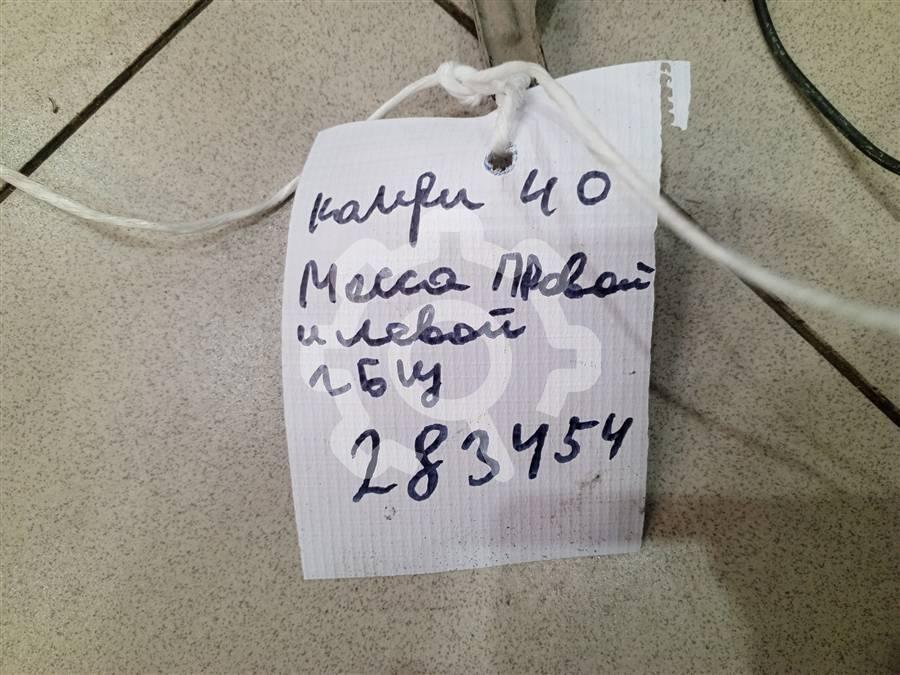 камри 40
Масса правой
и левой
гбц
283454